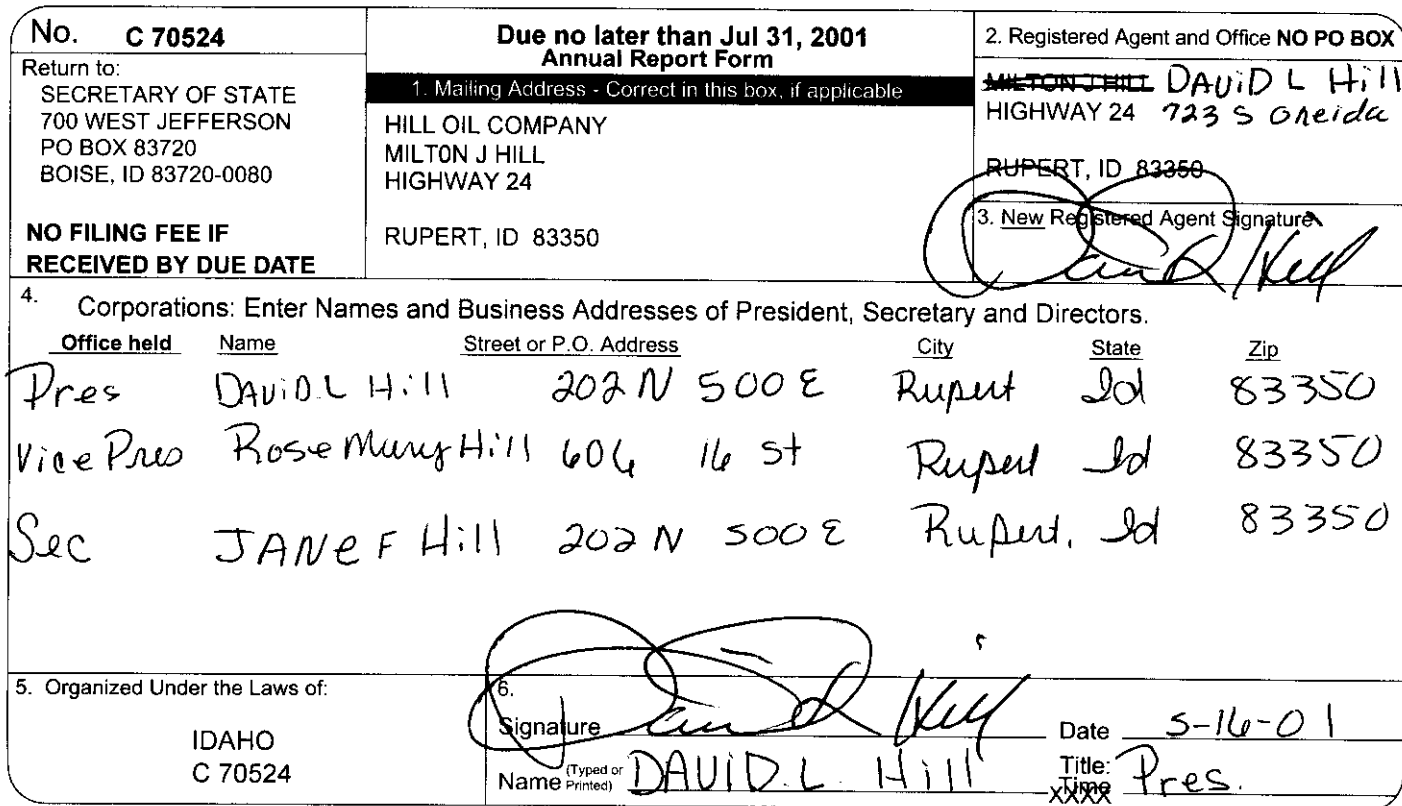 No. C 70524
Return to:
SECRETARY OF STATE
700 WEST JEFFERSON
PO BOX 83720
BOISE, ID 83720-0080
NO FILING FEE IF
RECEIVED BY DUE DATE
Due no later than Jul 31, 2001
Annual Report Form
1. Mailing Address - Correct in this box, if applicable
HILL OIL COMPANY
MILTON J HILL
HIGHWAY 24
RUPERT, ID 83350
2. Registered Agent and Office NO PO BOX
MILTON J HILL DAViD L Hill
HIGHWAY 24 723 S Oneida
RUPERT, ID 83350
3. New Registered Agent Signature
David L Hill
4. Corporations: Enter Names and Business Addresses of President, Secretary and Directors.
Office held Name Street or P.O. Address City State Zip
Pres DAViD L Hill 202 N 500 E Rupert Id 83350
Vice Pres Rose Mary Hill 606 16 St Rupert Id 83350
Sec JANe F Hill 202 N 500 E Rupert, Id 83350
5. Organized Under the Laws of:
IDAHO
C 70524
6.
Signature David L Hill Date 5-16-01
Name (Typed or Printed) DAViD. L. Hill Title: Pres.
Time
XXXX